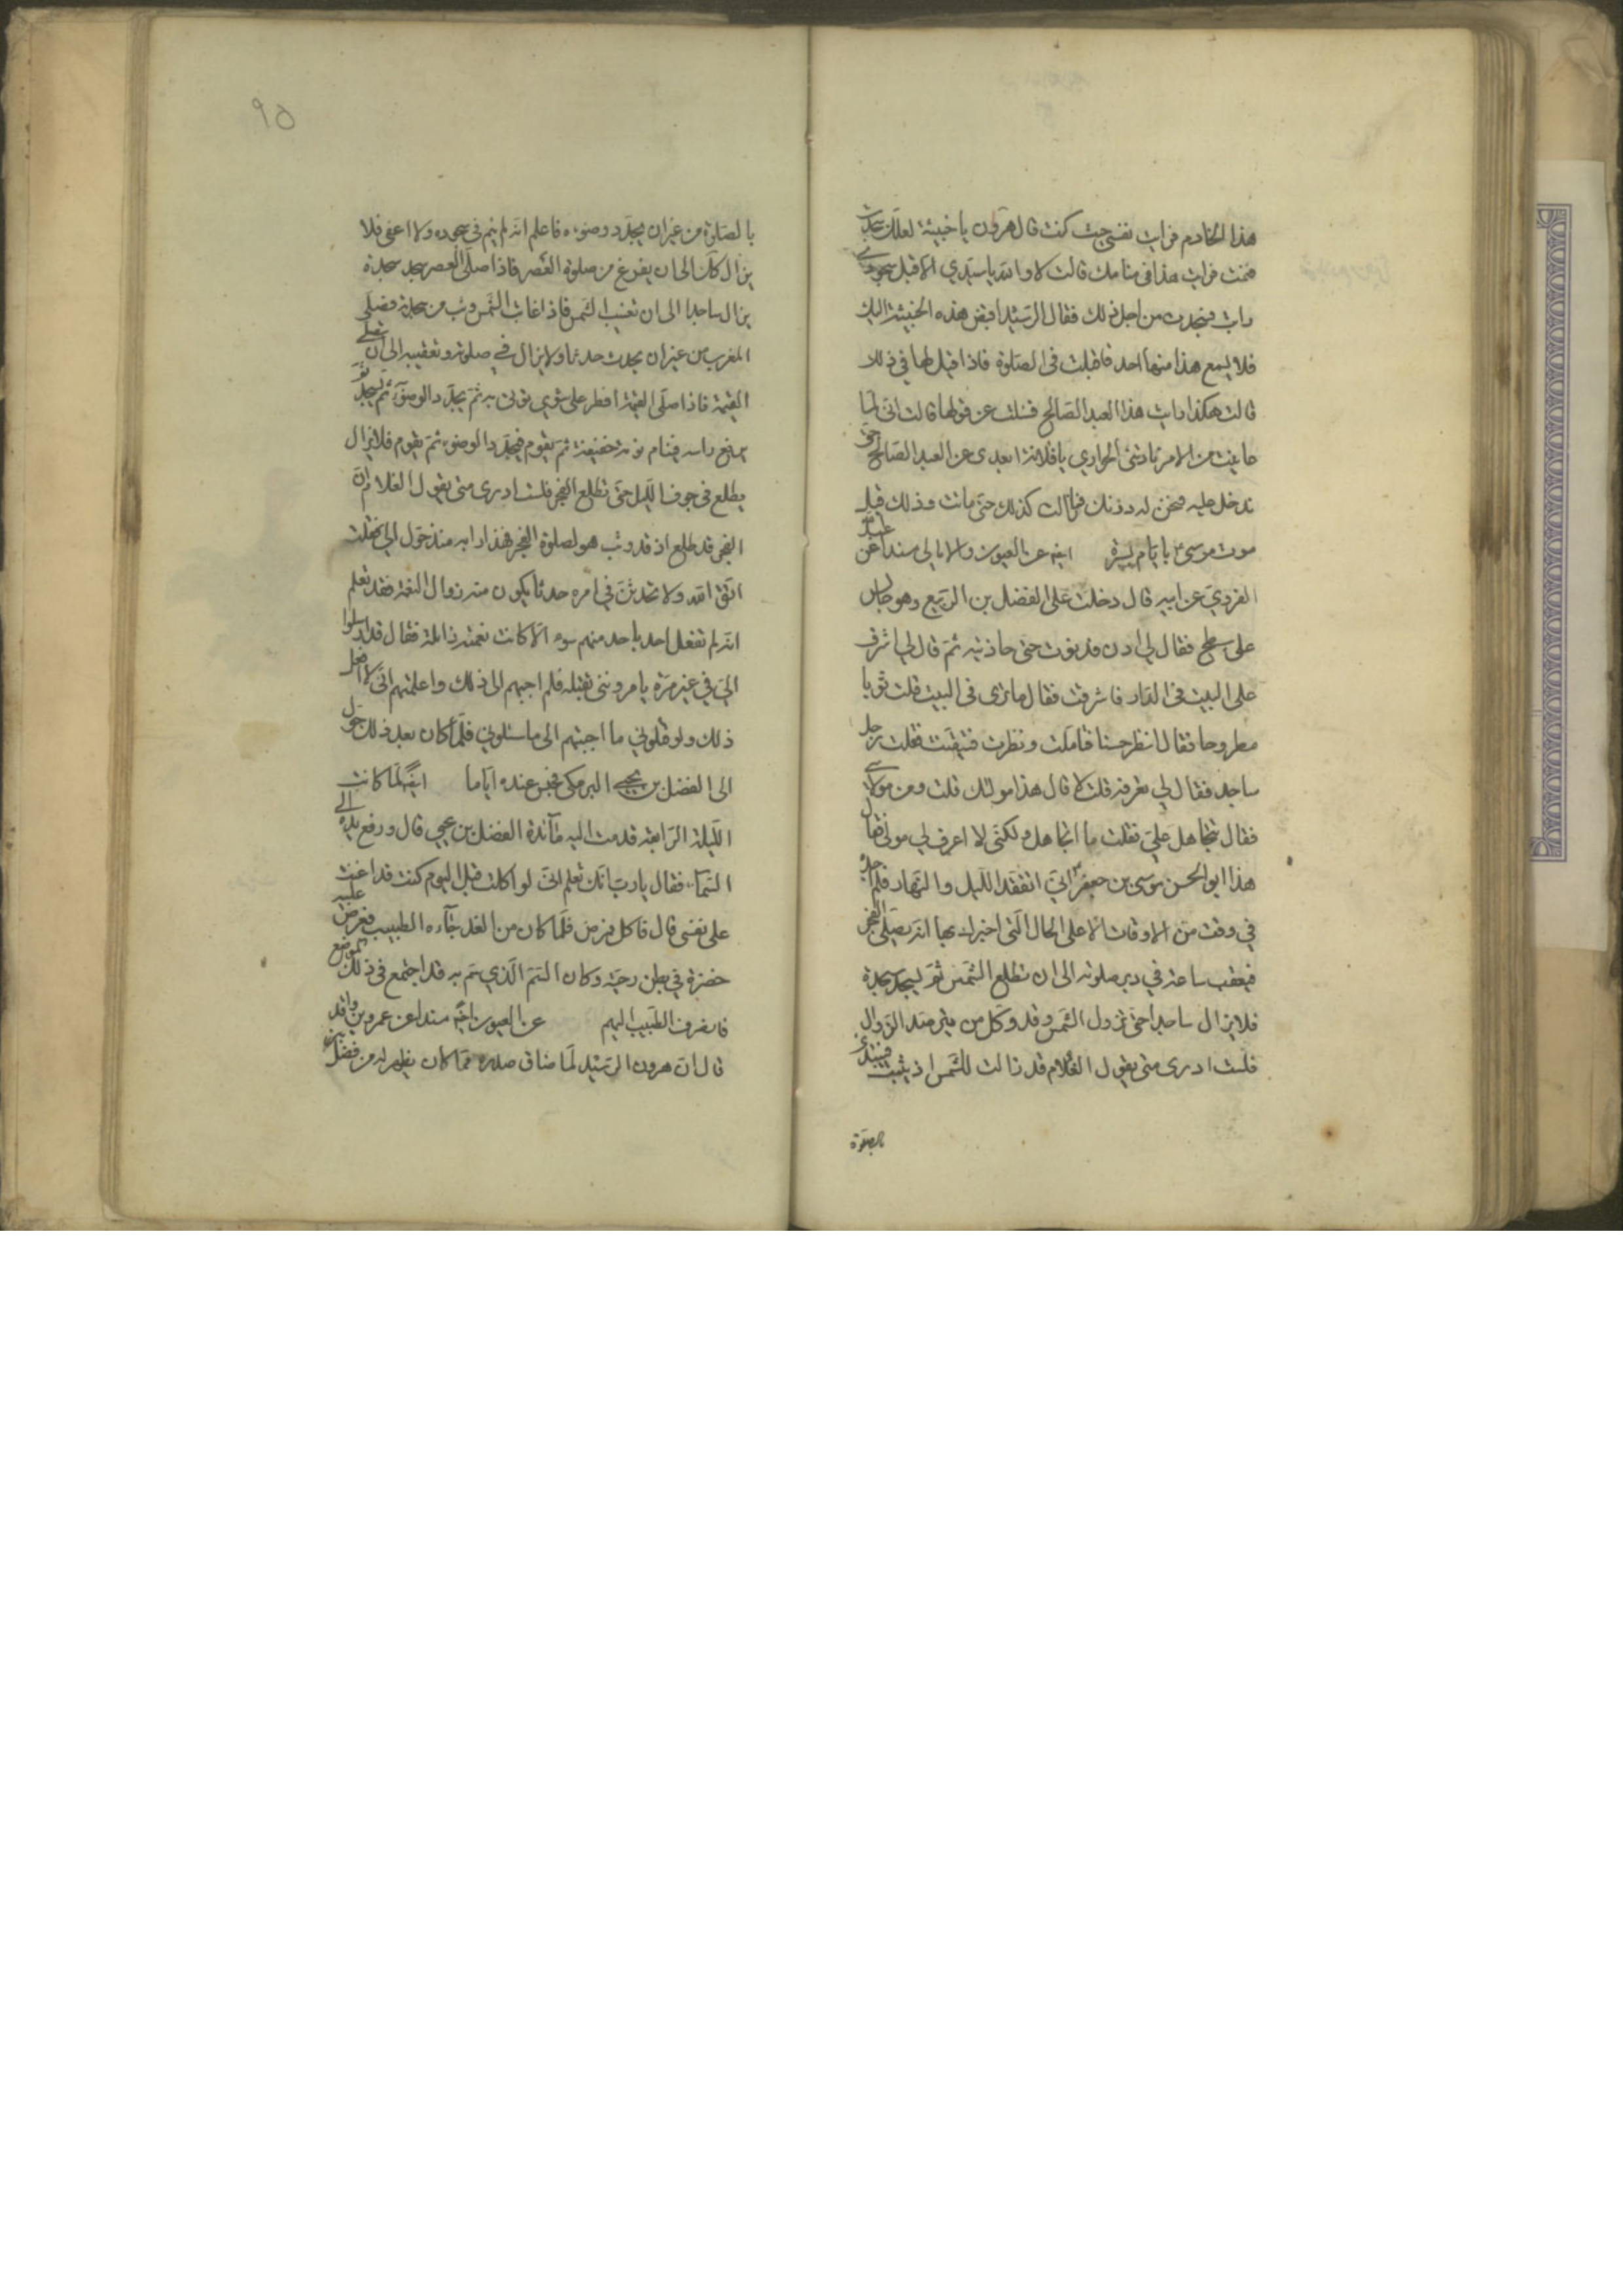 هذا الخادم فرايت نفسي حيث كنت قال هرون يا خبيثة لعلك سجدت
فنمت فرايت هذا في منامك قالت لا والله يا سيدي الا قبل سجودي
رايت فسجدت من اجل ذلك فقال الرشيد اقبض هذه الخبيثة اليك
فلا يسمع هذا منها احد فاقبلت في الصلوة فاذا قيل لها في ذلك
قالت هكذا رايت هذا العبد الصالح فسئلت عن قولها قالت اني لما
عاينت من الامر نادتني الجواري يا فلانة ابعدي عن العبد الصالح حتى
ندخل عليه فنحن له دونك فما زالت كذلك حتى ماتت وذلك قبل
موت موسى ع بايام يسيرة ايضه عن العيون والامالي مسندا عن عبد الله
القروي عن ابيه قال دخلت على الفضل بن الربيع وهو جالس
على سطح فقال لي ادن فدنوت حتى حاذيته ثم قال لي اشرف
على البيت في الدار فاشرفت فقال ما ترى في البيت قلت ثوبا
مطروحا فقال انظر حسنا فتاملت ونظرت فتيقنت فقلت رجل
ساجد فقال لي تعرفه قلت لا قال هذا مولاك قلت ومن مولاي
فقال تتجاهل علي فقلت ما اتجاهل ولكني لا اعرف لي مولى فقال
هذا ابو الحسن موسى بن جعفر ع اني اتفقد الليل والنهار فلم اجده
في وقت من الاوقات الا على الحال التي اخبرك بها انه يصلي الفجر
فيعقب ساعة في دبر صلوته الى ان تطلع الشمس ثم يسجد سجدة
فلا يزال ساجدا حتى تزول الشمس وقد وكل من يترصد الزوال
فلست ادري متى يقول الغلام قد زالت الشمس اذ يثب فيبتدئ
بالصلوة
٩٥
بالصلوة من غير ان يجدد وضوءه فاعلم انه لم ينم في سجوده ولا اغفى فلا
يزال كذلك الى ان يفرغ من صلوة العصر فاذا صلى العصر سجد سجدة
يزال ساجدا الى ان تغيب الشمس فاذا غابت الشمس وثب من سجدته فصلى
المغرب من غير ان يحدث حدثا ولا يزال في صلوته وتعقيبه الى ان يصلي
العتمة فاذا صلى العتمة افطر على شوي يؤتى به ثم يجدد الوضوء ثم يسجد ثم
يرفع راسه فينام نومة خفيفة ثم يقوم فيجدد الوضوء ثم يقوم فلا يزال
يطلع في جوف الليل حتى تطلع الفجر فلست ادري متى يقول الغلام ان
الفجر قد طلع اذ قد وثب هو لصلوة الفجر فهذا دابه منذ حول الي فقلت
اتق الله ولا تحدثن في امره حدثا يكون منه زوال النعمة فقد تعلم
انه لم تفعل احد باحد منهم سوء الا كانت نعمته زائلة فقال قد ارسلوا
الي في غير مرة يامرونني بقتله فلم اجبهم الى ذلك واعلمتهم اني لا افعل
ذلك ولو قتلوني ما اجبتهم الى ما سئلوني فلما كان بعد ذلك حول
الى الفضل بن يحيى البرمكي فحبس عنده اياما ايضه لما كانت
الليلة الرابعة قدمت اليه مائدة الفضل بن يحيى قال ورفع يده الى
السماء فقال يا رب انك تعلم اني لو اكلت قبل اليوم كنت قد اعنت
على نفسي قال فاكل فمرض فلما كان من الغد جاءه الطبيب فعرض عليه
خضرة في بطن راحته وكان السم الذي سم به قد اجتمع في ذلك الموضع
فانصرف الطبيب اليهم عن العيون ايضه مسندا عن عمرو بن واقد
قال ان هرون الرشيد لما ضاق صدره مما كان يظهر له من فضل